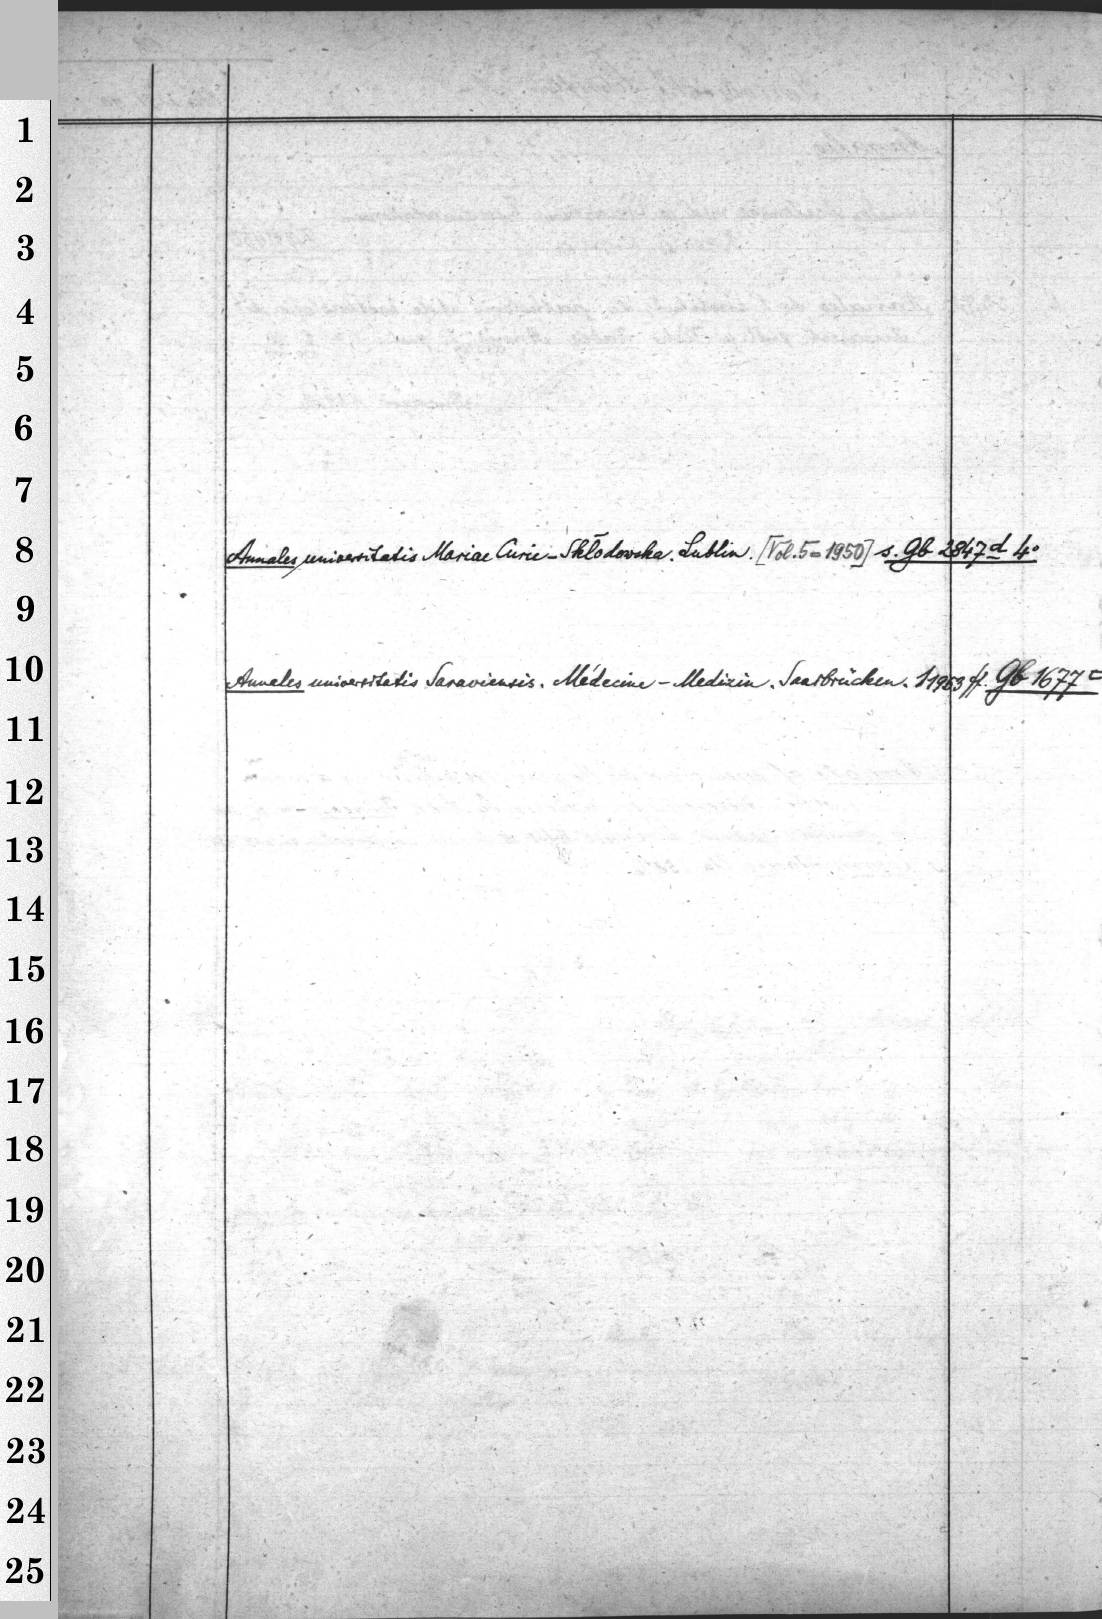 1
2
3
4
5
6
7
8
Annales universitatis Mariae Curie-Skłodowska. Lublin. [Vol.5=1950] s. Gb 2847d 4o
9
10
Annales universitatis Saraviensis. Médecine - Medizin. Saarbrücken. 1 1953 ff. Gb 1677c
11
12
13
14
15
16
17
18
19
20
21
22
23
24
25